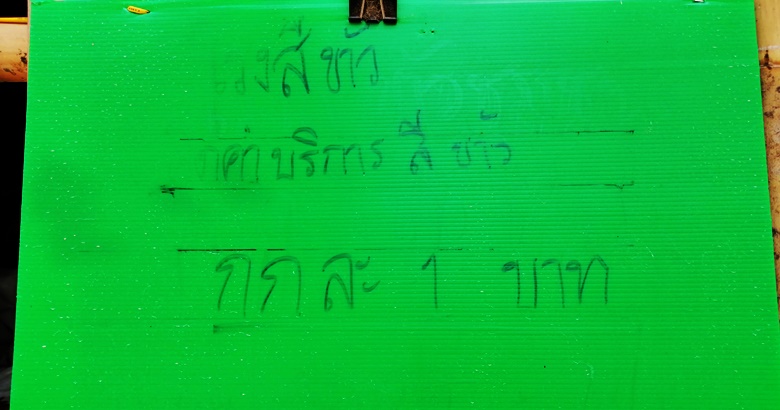 โรงสีข้าว
ค่าบริการ สีข้าว
กก ละ 1 บาท